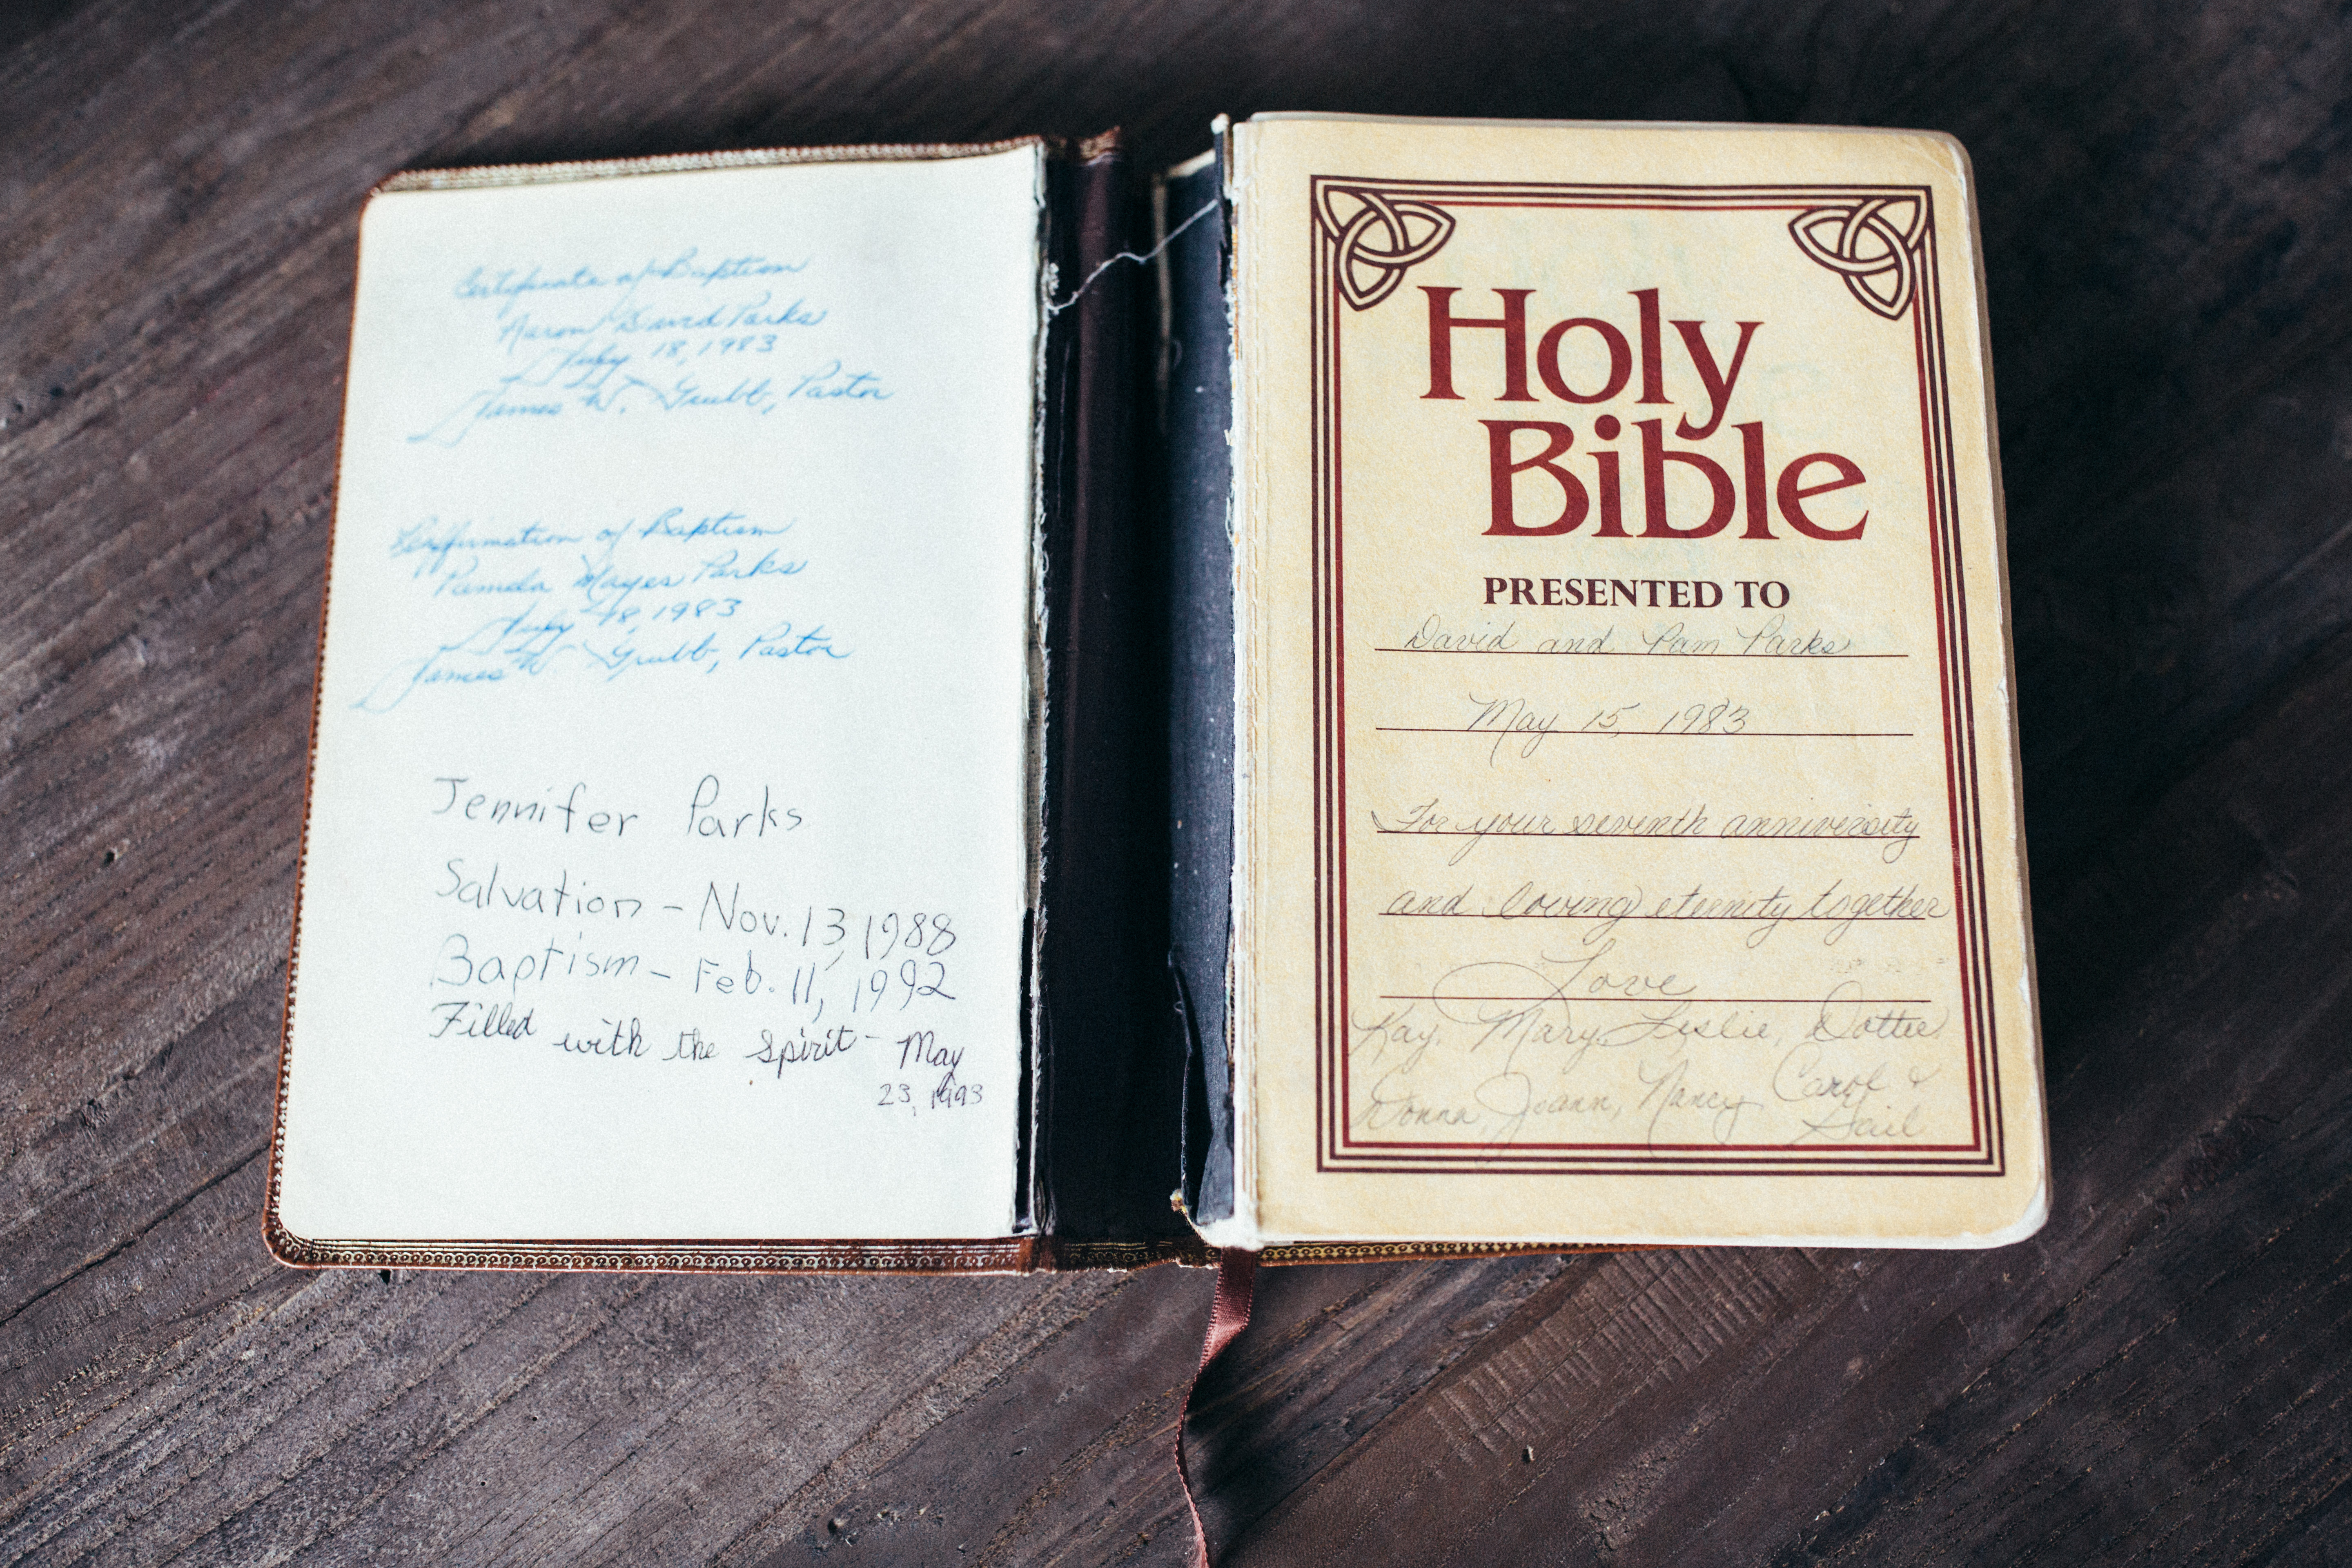 Certificate of Baptism
Aaron David Parks
July 18, 1983
James W. Grubb, Pastor
Reaffirmation of Baptism
Pamela Mayes Parks
July 18, 1983
James W Grubb, Pastor
Jennifer Parks
Salvation - Nov. 13, 1988
Baptism - Feb. 11, 1992
Filled with the Spirit - May
23, 1993
Holy
Bible
PRESENTED TO
David and Pam Parks
May 15, 1983
For your seventh anniversity
and loving eternity together
Love
Kay, Mary, Leslie, Dottie
Donna, Joann, Nancy, Carol &
Gail